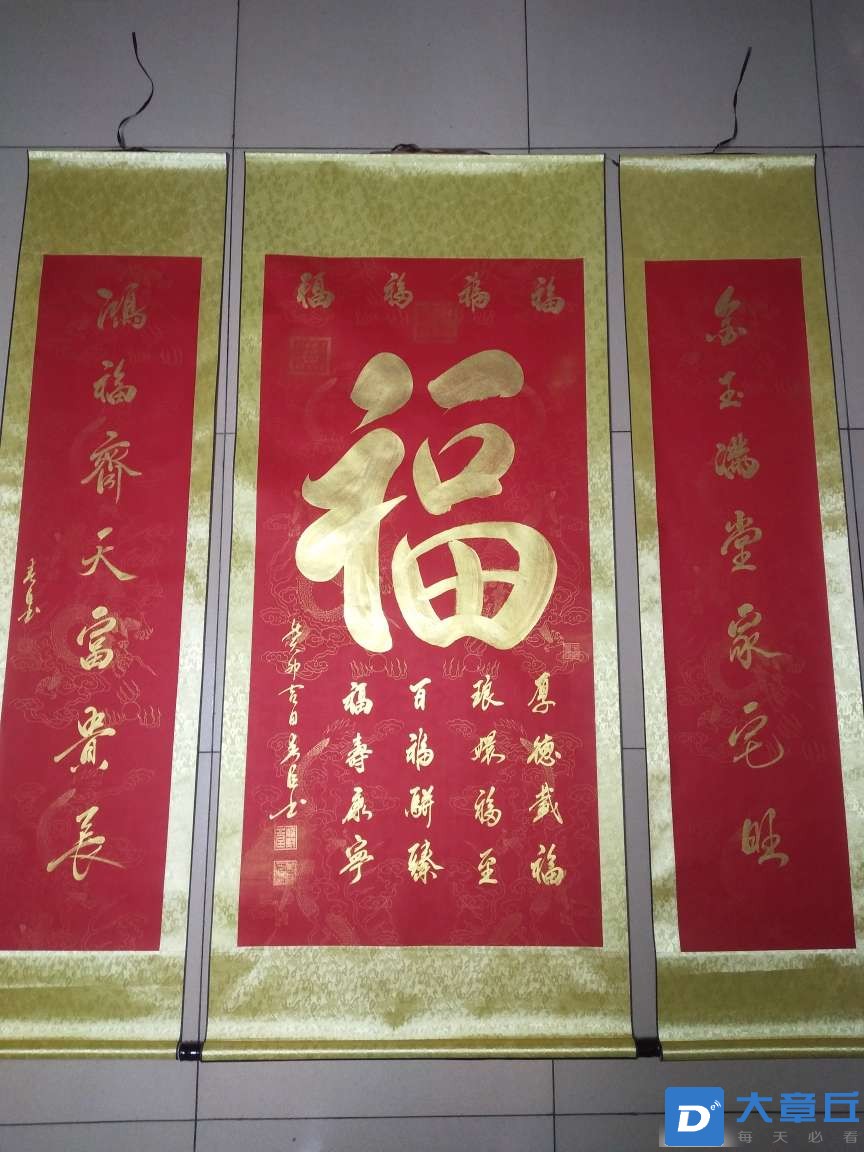 金玉滿堂家宅旺
福福福福
福
厚德載福
琅嬛福至
百福駢臻
福壽康寧
癸卯吉日
鴻福齊天富貴長
大章丘
每天必看